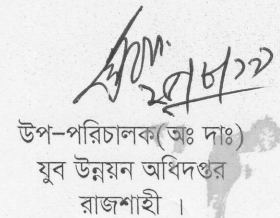 উপ-পরিচালক(অঃ দাঃ)
যুব উন্নয়ন অধিদপ্তর
রাজশাহী ।